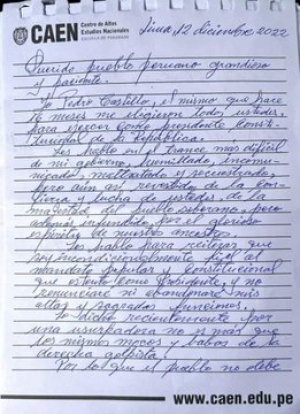 CAEN
Centro de Altos
Estudios Nacionales
ESCUELA DE POSGRADO
Lima, 12 diciembre 2022
Querido pueblo peruano grandioso
y paciente.
Yo Pedro Castillo, el mismo que hace
16 meses me eligieron todos ustedes,
para ejercer como presidente Consti-
tucional de la República.
Les hablo en el trance más difícil
de mi gobierno, humillado, incomu-
nicado, maltratado y secuestrado,
pero aún así revestido de la con-
fianza y lucha de ustedes, de la
majestad del pueblo soberano, pero
además infundido por el glorioso
espíritu de nuestros ancestros.
Les hablo para reiterar que
soy incondicionalmente fiel al
mandato popular y constitucional
que ostento como presidente, y no
renunciaré ni abandonaré mis
altas y sagradas funciones.
Lo dicho recientemente por
una usurpadora no es más que
los mismos mocos y babas de la
derecha golpista.
Por lo que el pueblo no debe
www.caen.edu.pe